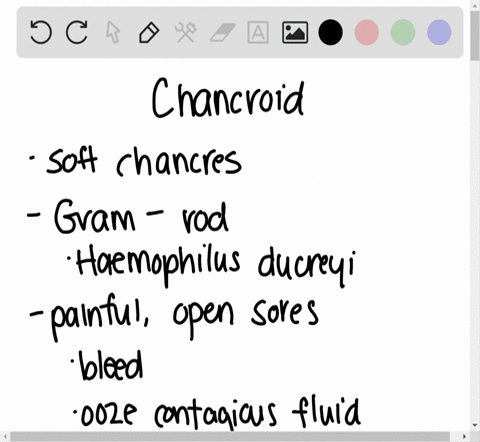 A
Chancroid
· soft chancres
- Gram - rod
· Haemophilus ducreyi
- painful, open sores
· bleed
· ooze contagious fluid